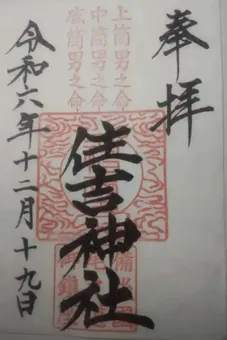 奉拝
上筒男之命
中筒男之命
底筒男之命
住吉神社
令和六年十二月十九日